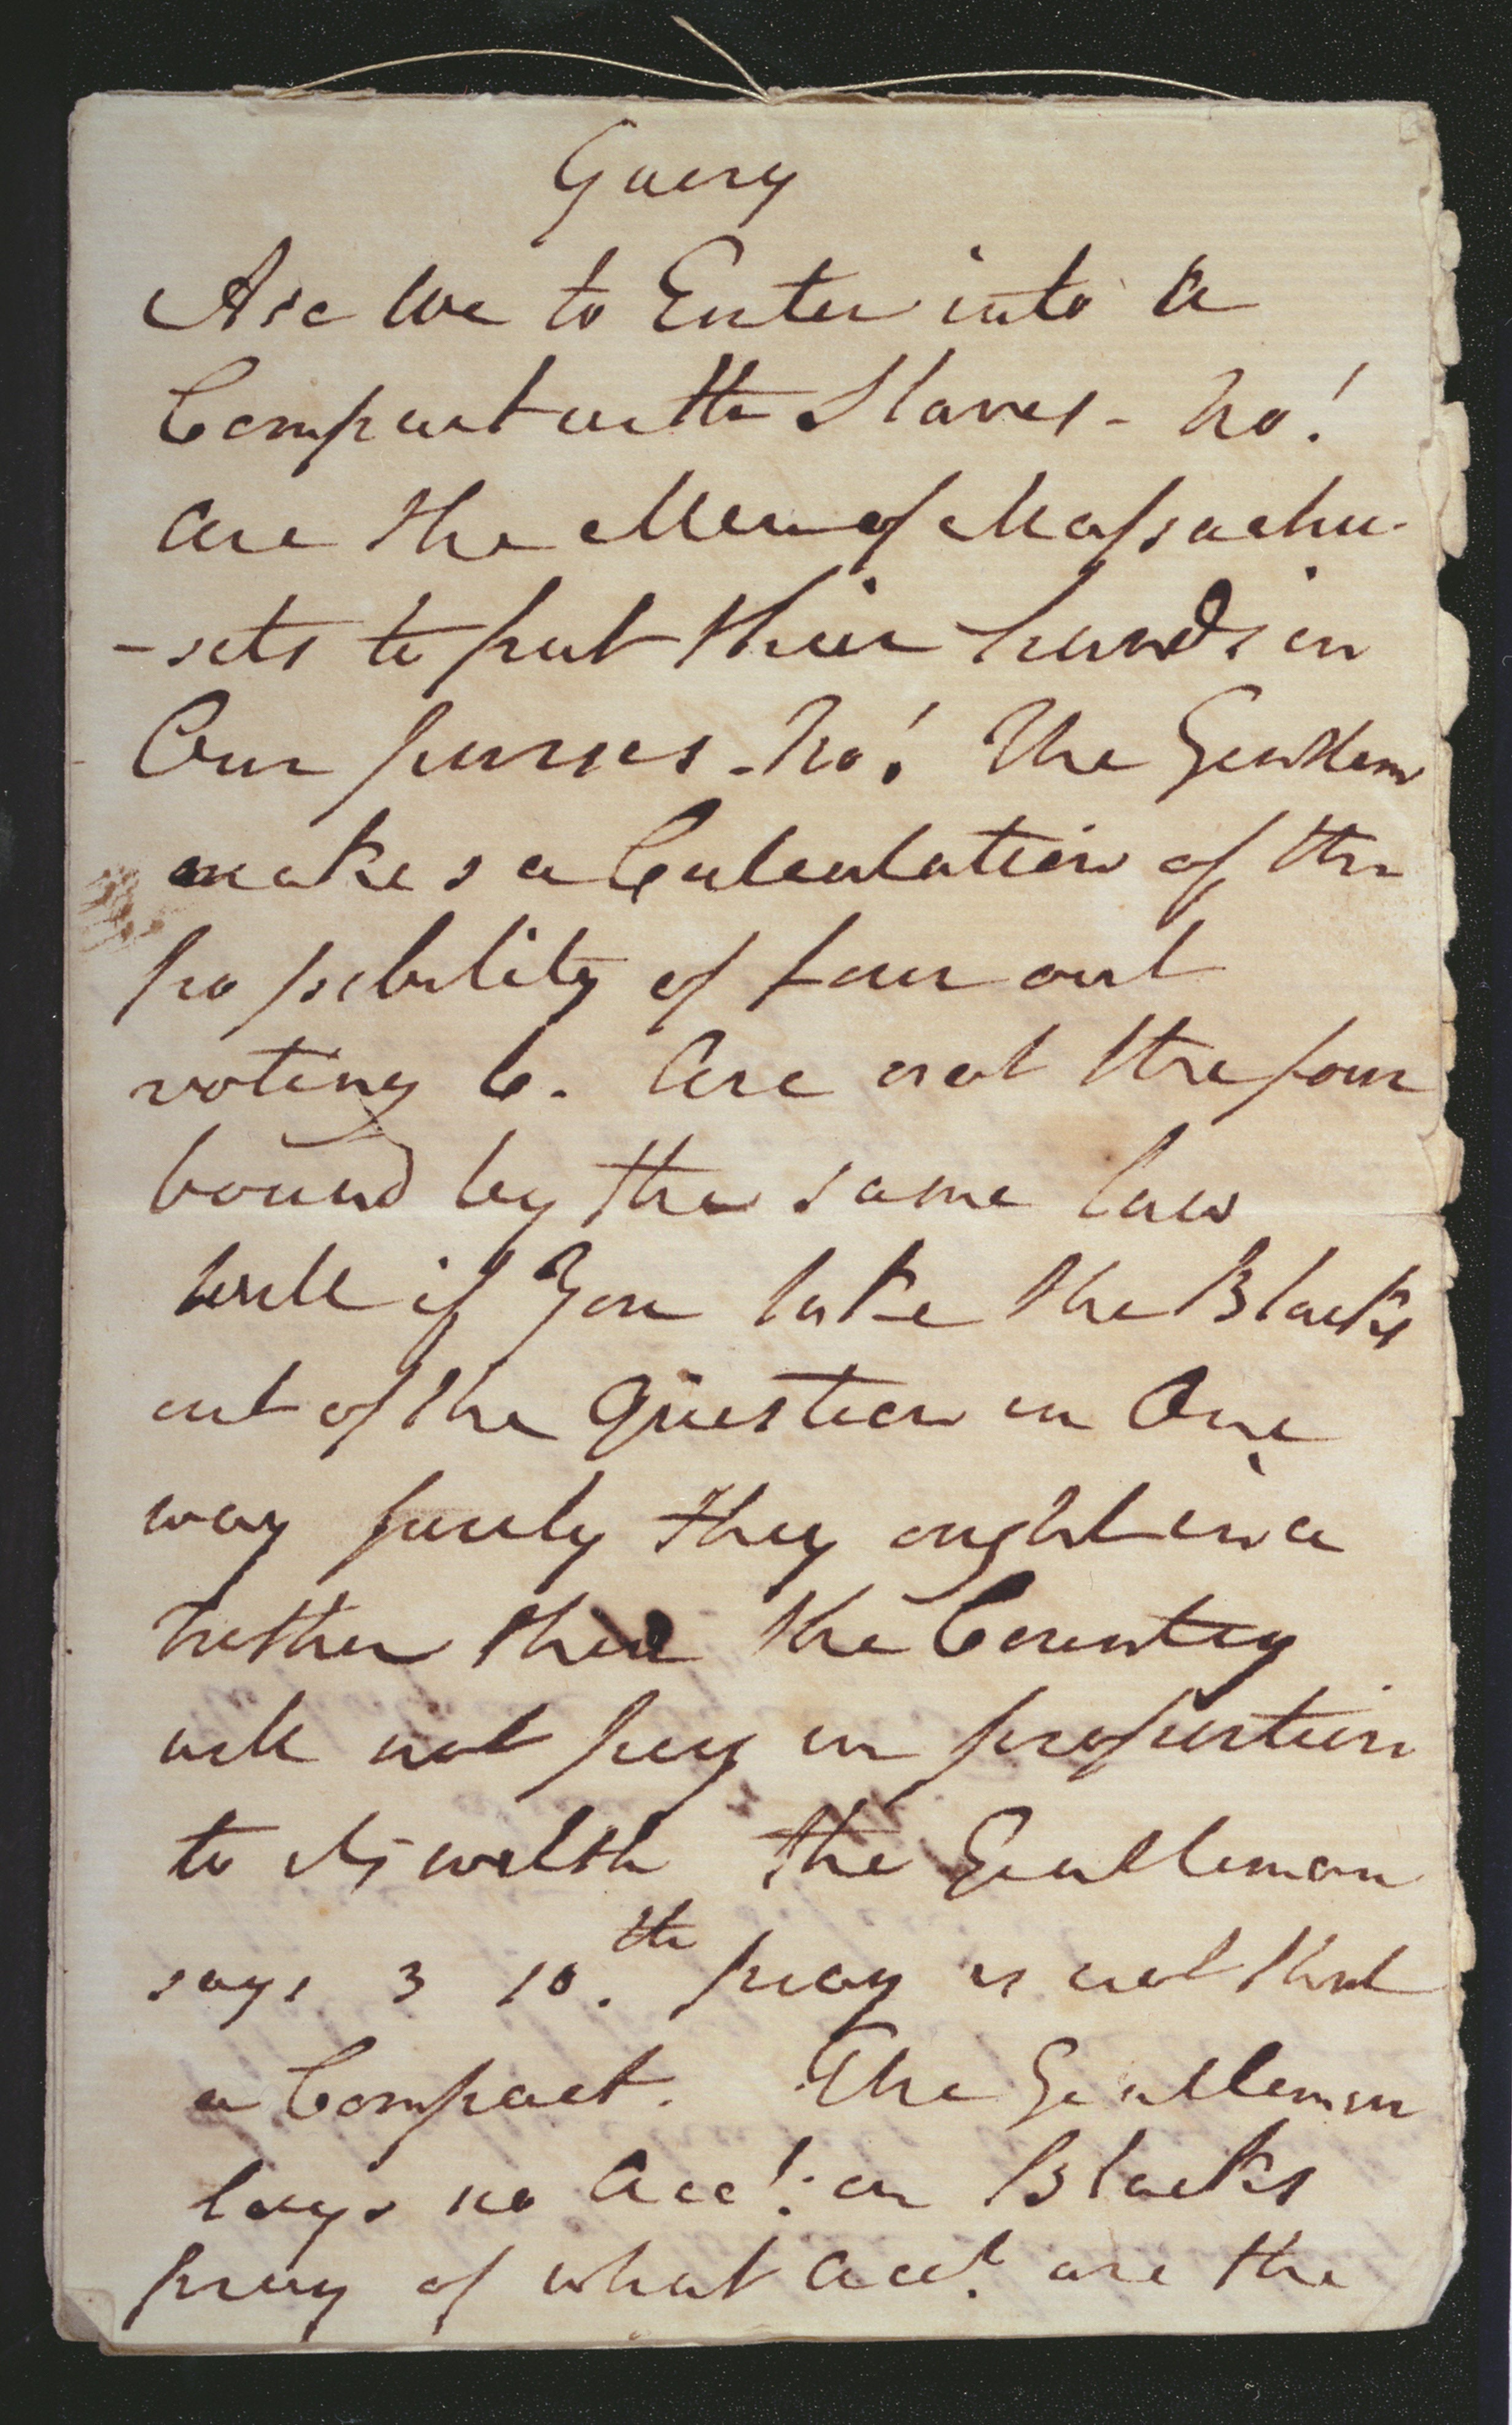 Query
Are we to Enter into a
Compact with Slaves - No!
are the Men of Massachu-
-sets to put their hands in
Our purses - No! The Gentlem
makes a Calculation of the
possibility of four out
voting 6. Are not the four
bound by the same law
well if You take the Blacks
out of the Question in One
way surely they ought in a
nother then the Country
will not pay in proportion
to its welth the Gentleman
says 3 10.th pray is not that
a Compact. The Gentleman
lays no Acct. on Blacks
pray of what Acct. are the